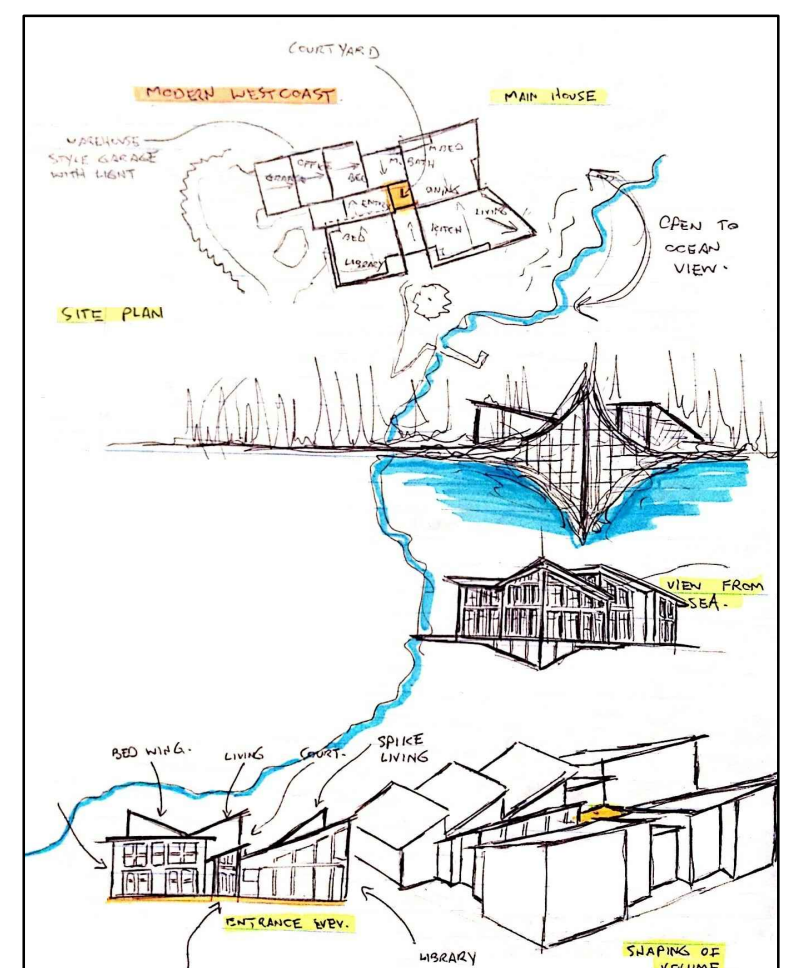 COURTYARD
MODERN WESTCOAST.
MAIN HOUSE
WAREHOUSE
STYLE GARAGE
WITH LIGHT
GARAGE
OFFICE
BED
M. BATH
M. BED
DINING
ENTRY
LIVING
KITCH
BED
LIBRARY
OPEN TO
OCEAN
VIEW.
SITE PLAN
VIEW FROM
SEA.
BED WING.
LIVING
COURT.
SPIKE
LIVING
ENTRANCE ELEV.
LIBRARY
SHAPING OF
VOLUME